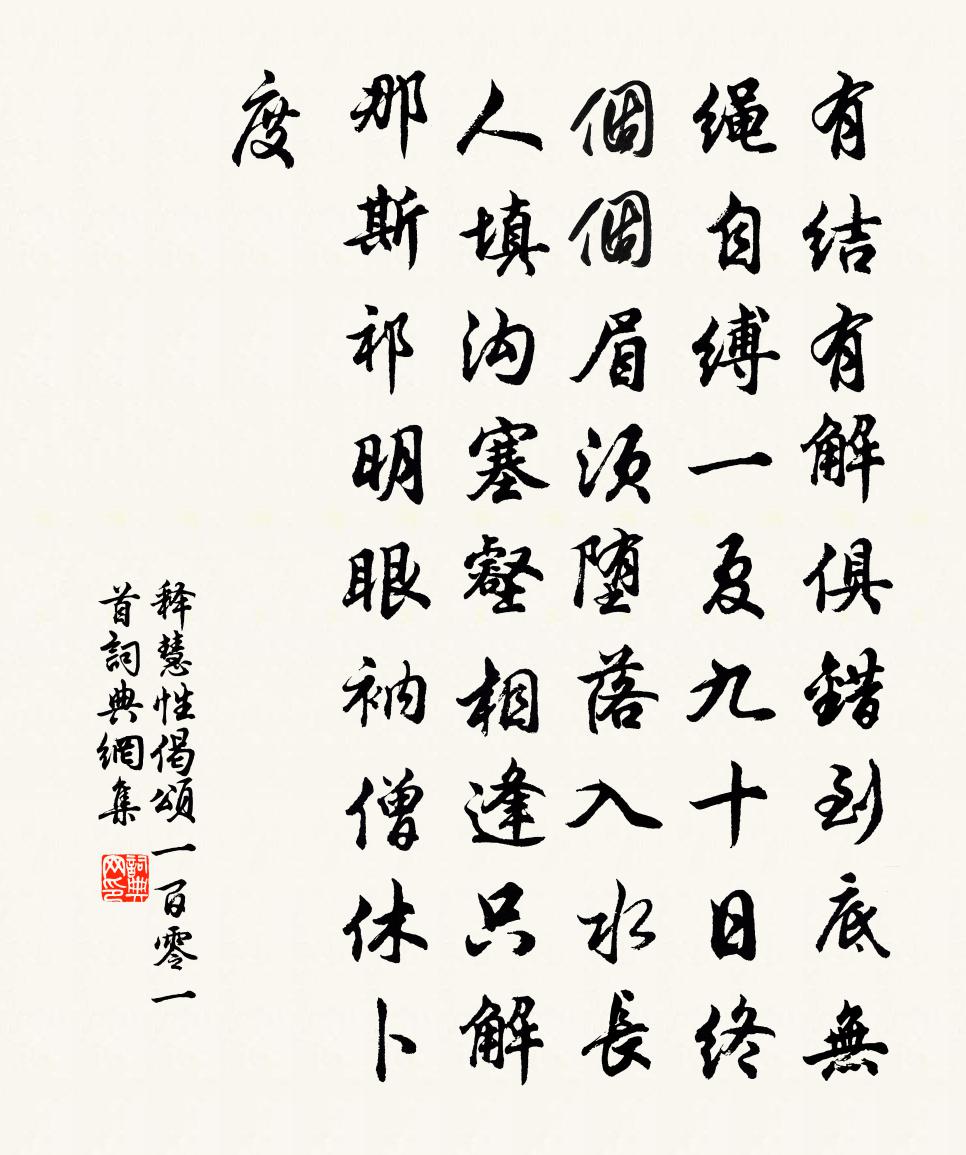 有结有解俱錯到底無
绳自缚一夏九十日终
個個眉须堕落入水長
人填沟塞壑相逢只解
那斯祁明眼衲僧休卜
度
释慧性偈頌一百零一
首詞典網集
詞典
网印